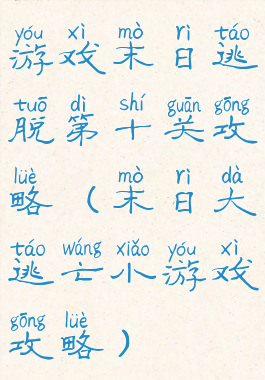 yóu xì mò rì táo
游戏末日逃
tuō dì shí guān gōng
脱第十关攻
lüè mò rì dà
略（末日大
táo wáng xiǎo yóu xì
逃亡小游戏
gōng lüè
攻略）